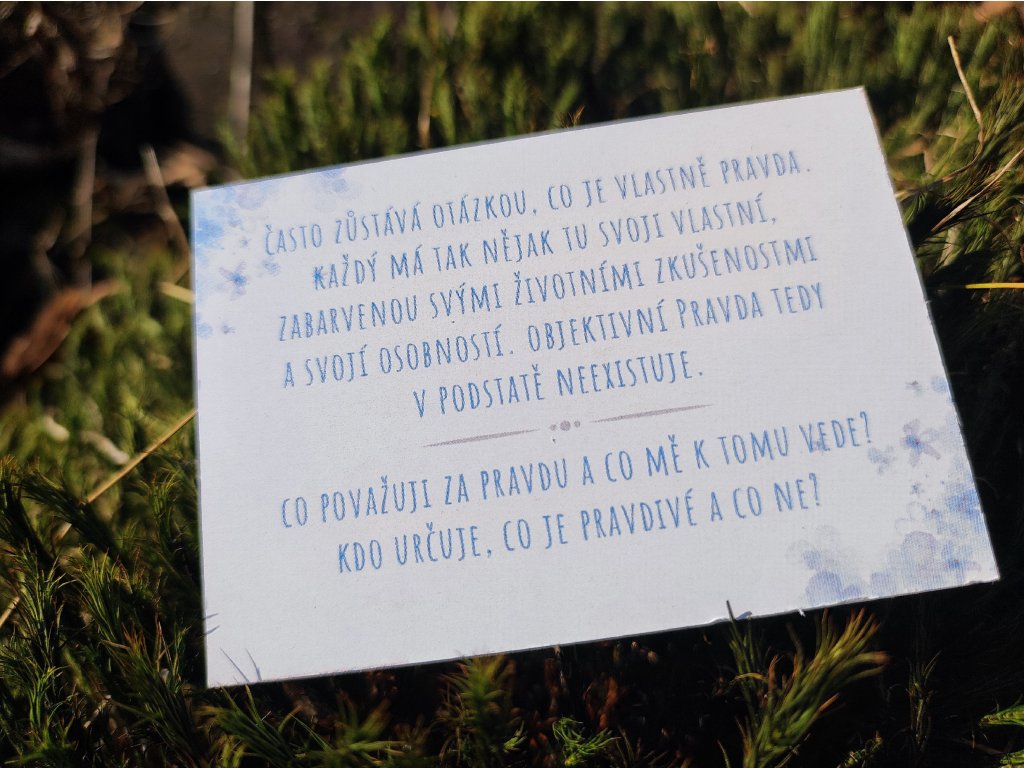 ČASTO ZŮSTÁVÁ OTÁZKOU, CO JE VLASTNĚ PRAVDA.
KAŽDÝ MÁ TAK NĚJAK TU SVOJI VLASTNÍ,
ZABARVENOU SVÝMI ŽIVOTNÍMI ZKUŠENOSTMI
A SVOJÍ OSOBNOSTÍ. OBJEKTIVNÍ PRAVDA TEDY
V PODSTATĚ NEEXISTUJE.
CO POVAŽUJI ZA PRAVDU A CO MĚ K TOMU VEDE?
KDO URČUJE, CO JE PRAVDIVÉ A CO NE?